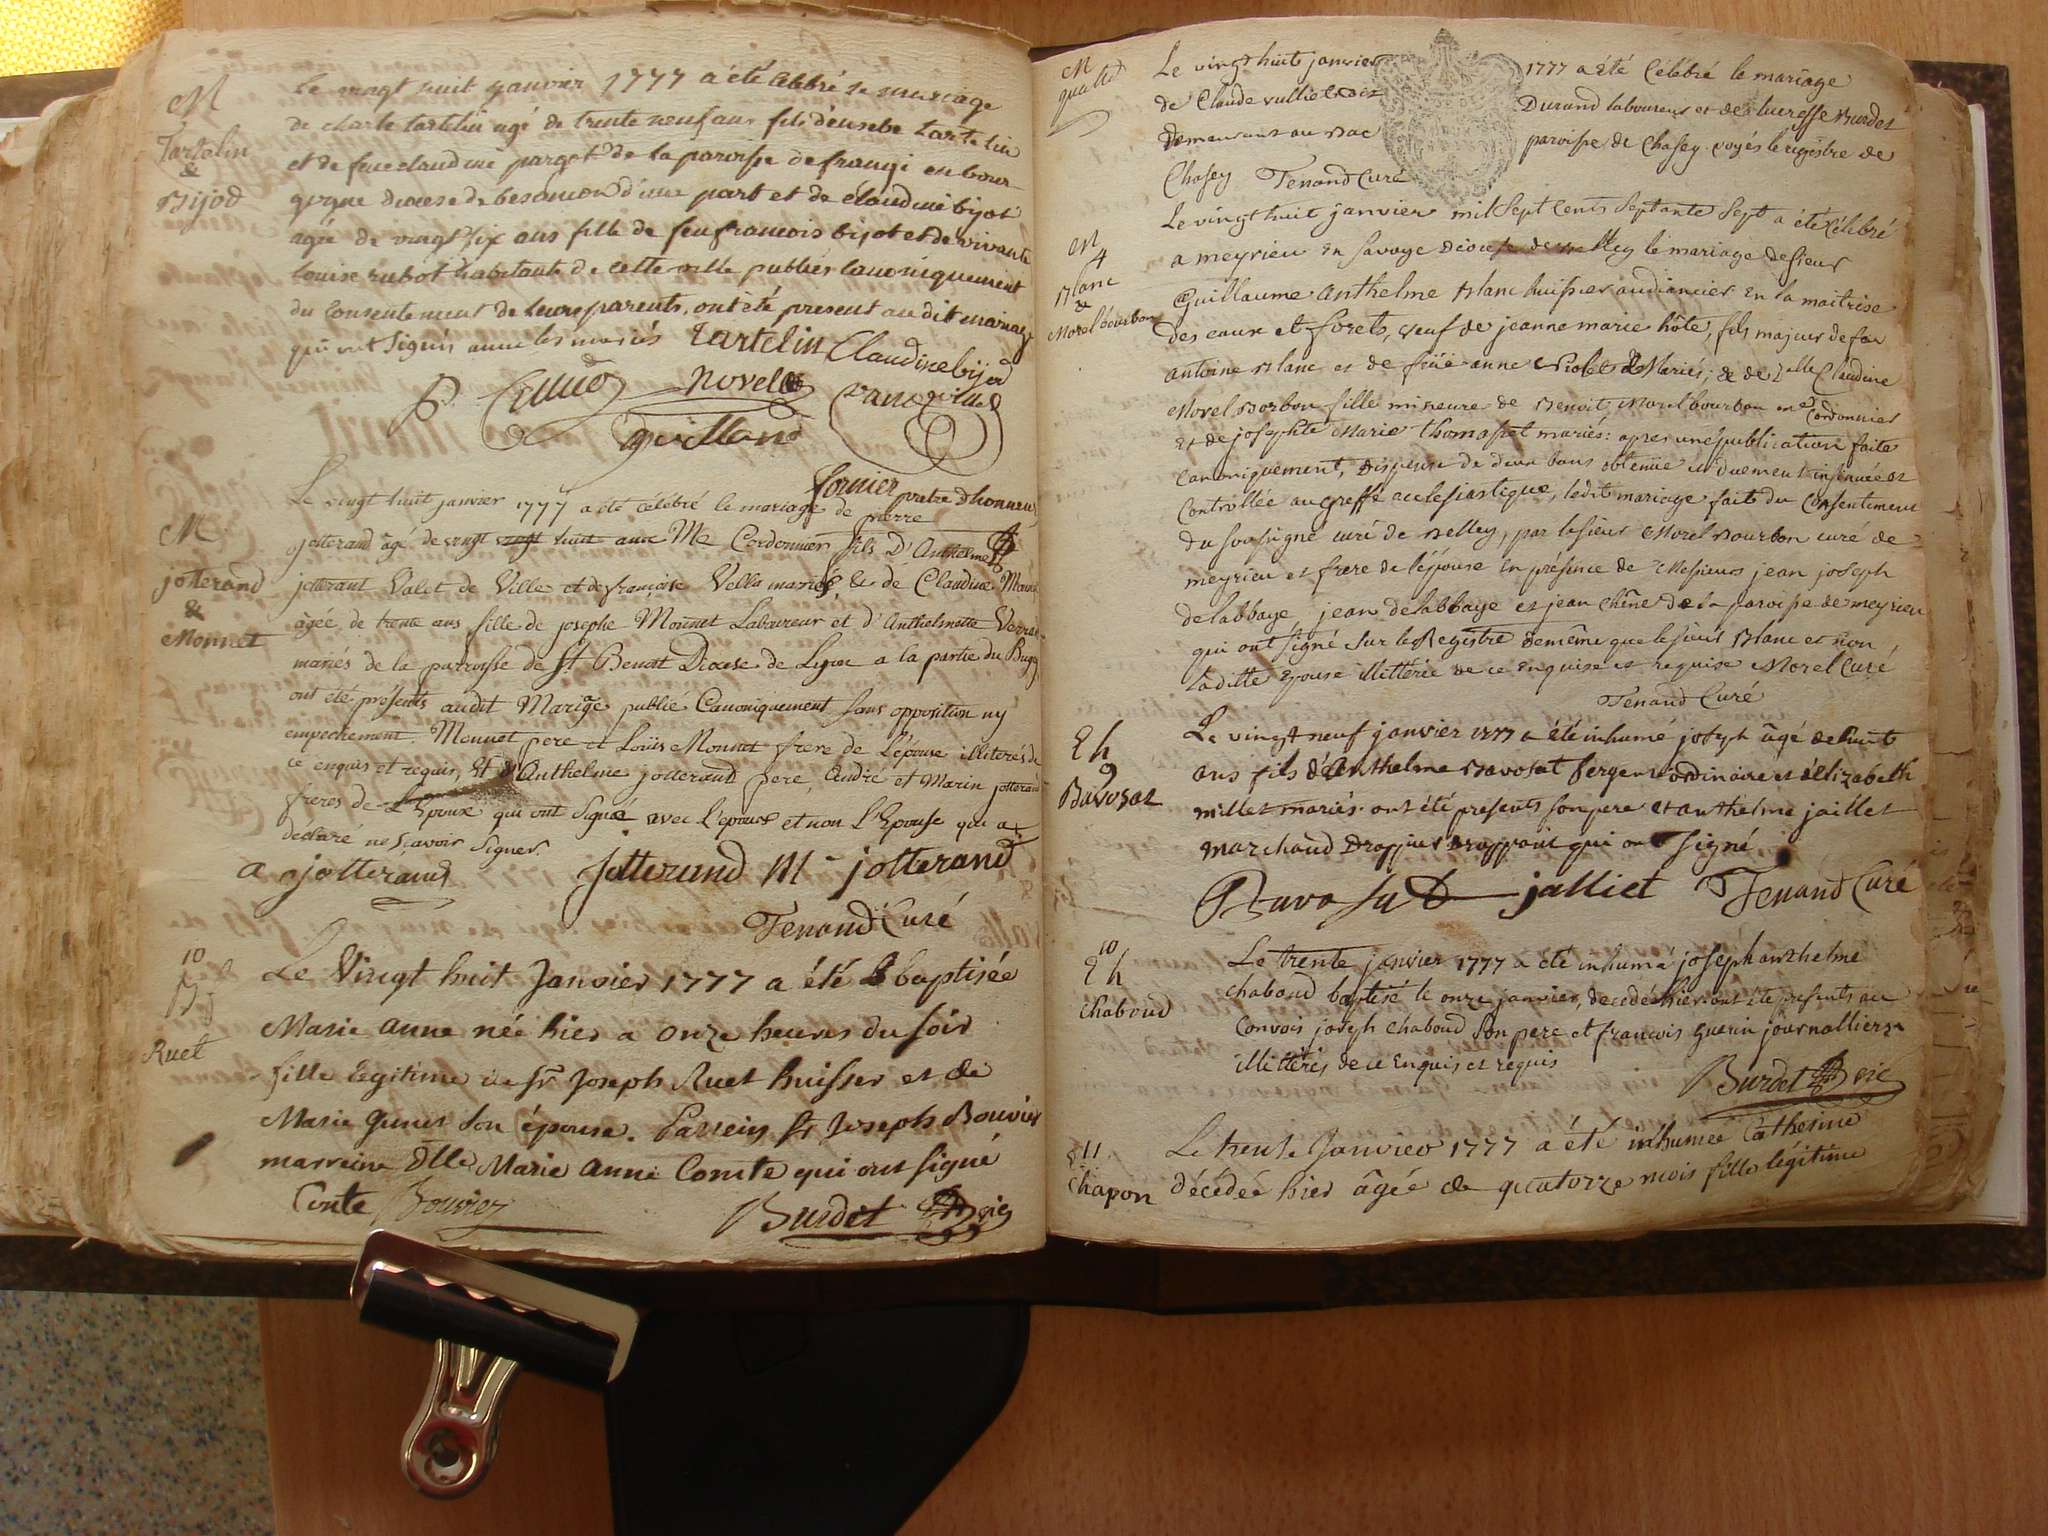 M
Tartelin
&
Bijod
Le vingt huit janvier 1777 a été célébré le mariage
de charle tartelin agé de trente neuf ans fils d'eusebe tartelin
et de feue claudine pargot de la paroisse de frangi en bour-
gogne diocese de besancon d'une part et de claudine bijot
agée de vingt six ans fille de feu francois bijot et de vivante
louise rubot habitante de cette ville publies canoniquement
du consentement de leurs parents, ont été present au dit mariage
qui ont signés avec les mariés Tartelin Claudine bijod
novel
guilland
fornier prètre d'honneur
M
jotterand
&
Monnet
Le vingt huit janvier 1777 a été célébré le mariage de pierre
jotterand âgé de vingt vingt huit ans Me Cordonnier fils D'Anthelme
jotterant Valet de Ville et de françoise Vella mariés, & de Claudine Monnet
âgée de trente ans fille de josephe Monnet Laboureur et d'Anthelmette
mariés de la parroisse de St. Benoit Diocese de Lyon a la partie du Bugey
ont été présents audit Mariage publié Canoniquement sans opposition ny
empechement. Monnet pere et Loüis Monnet frere de l'épouse illiterés de
ce enquis et requis, Et d'Anthelme jotterand pere, André et Marin jotterand
freres de L'Epoux qui ont signé avec L'epoux et non L'Epouse qui a
déclaré ne sçavoir signer.
a jotterand jotterand M jotterand
Tenand Curé
10
Ruet
Le Vingt huit Janvier 1777 a été baptisée
Marie anne née hier a onze heures du soir
fille legitime de Sr Joseph Ruet huissier et de
Marie son épouse. Parrein Sr Joseph Bouvier
marreine Dlle Marie anne Comte qui ont signé
Conte Bouvier Burdet vic
M
Le vingt huit janvier 1777 a été célébré le mariage
de Claude Durand laboureur et de lucresse Burdet
demeurant au Bac paroisse de Chasey. voyés le registre de
Chasey Tenand Curé
M
4
Blanc
&
Morel bourbon
Le vingt huit janvier mil sept cents septante sept a été célébré
a meyrieu en Savoye diocese de Belley le mariage de sieur
Guillaume Anthelme Blanc huissier audiancier en la maitrise
des eaux et forets, veuf de jeanne marie hôte, fils majeur de feu
antoine Blanc et de feüe anne Violet Mariés; & de Dlle Claudine
Morel Borbon fille mineure de Benoit Morel bourbon me Cordonnier
et de josephte Marie thomasset mariés: apres une publication faite
canoniquement, dispense de deux bans obtenüe et duement insinuée et
controllée au greffe ecclesiastique, ledit mariage fait du consentement
du soussigné curé de Belley, par le sieur Morel Bourbon curé de
meyrieu et frere de l'épouse en présence de Messieurs jean joseph
delabbaye jean delabbaye et jean chêne de la paroisse de meyrieu
qui ont signé sur le Registre de même que le sieur Blanc et non
laditte épouse illitterée de ce enquise et requise Morel Curé
Tenand Curé
Eh
9
Bavosat
Le vingt neuf janvier 1777 a été inhumé joseph âgé de huit
ans fils d'Anthelme Bavosat sergent ordinaire et d'Elizabeth
millet mariés. ont été presents son pere et anthelme jaillet
marchand Drappier qui ont signé
Bavosat jalliet Tenand Curé
10
Eh
chaboud
Le trente janvier 1777 a été inhumé joseph anthelme
chaboud baptisé le onze janvier, decedé hier ont été presents au
Convois joseph chaboud son pere et francois guerin journalliers
illitterés de ce enquis et requis
Burdet vic
11
Chapon
Le trente Janvier 1777 a été inhumée Catherine
décédée hier âgée de quatorze mois fille légitime